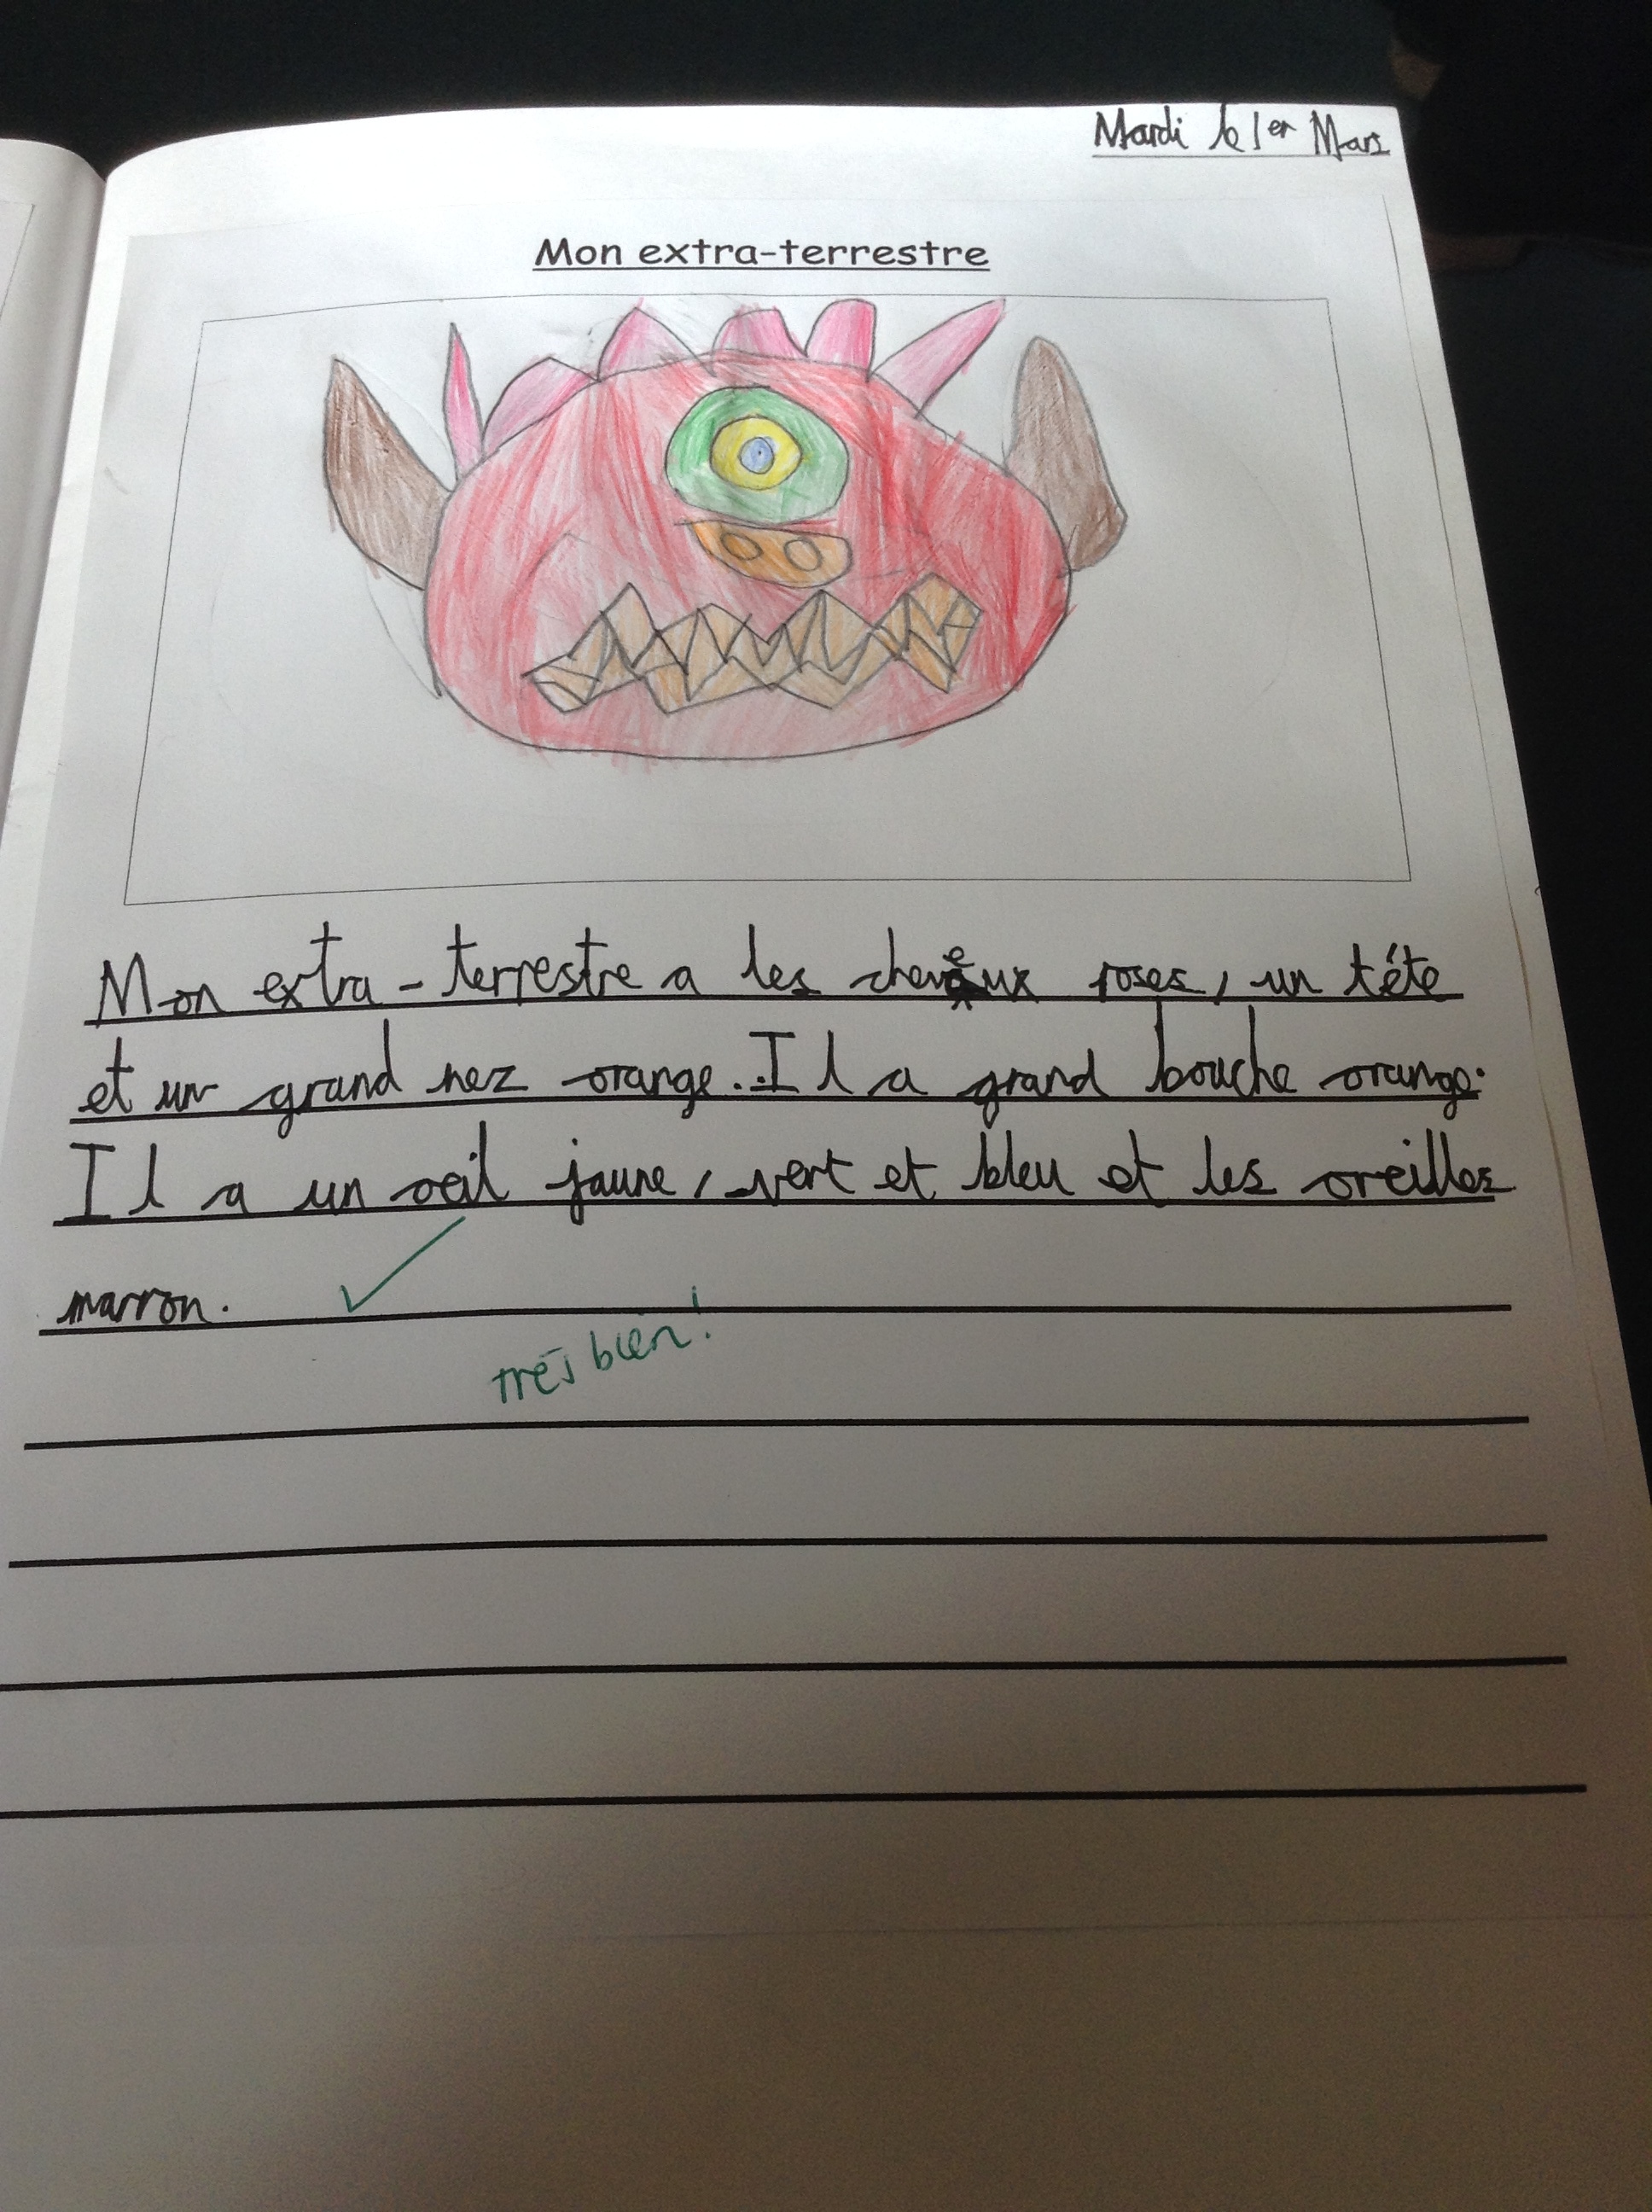 Mardi le 1er Mars
Mon extra-terrestre
Mon extra-terrestre a les cheveux roses, un téte
et un grand nez orange. Il a grand bouche orange.
Il a un oeil jaune, vert et bleu et les oreilles
marron.
très bien!